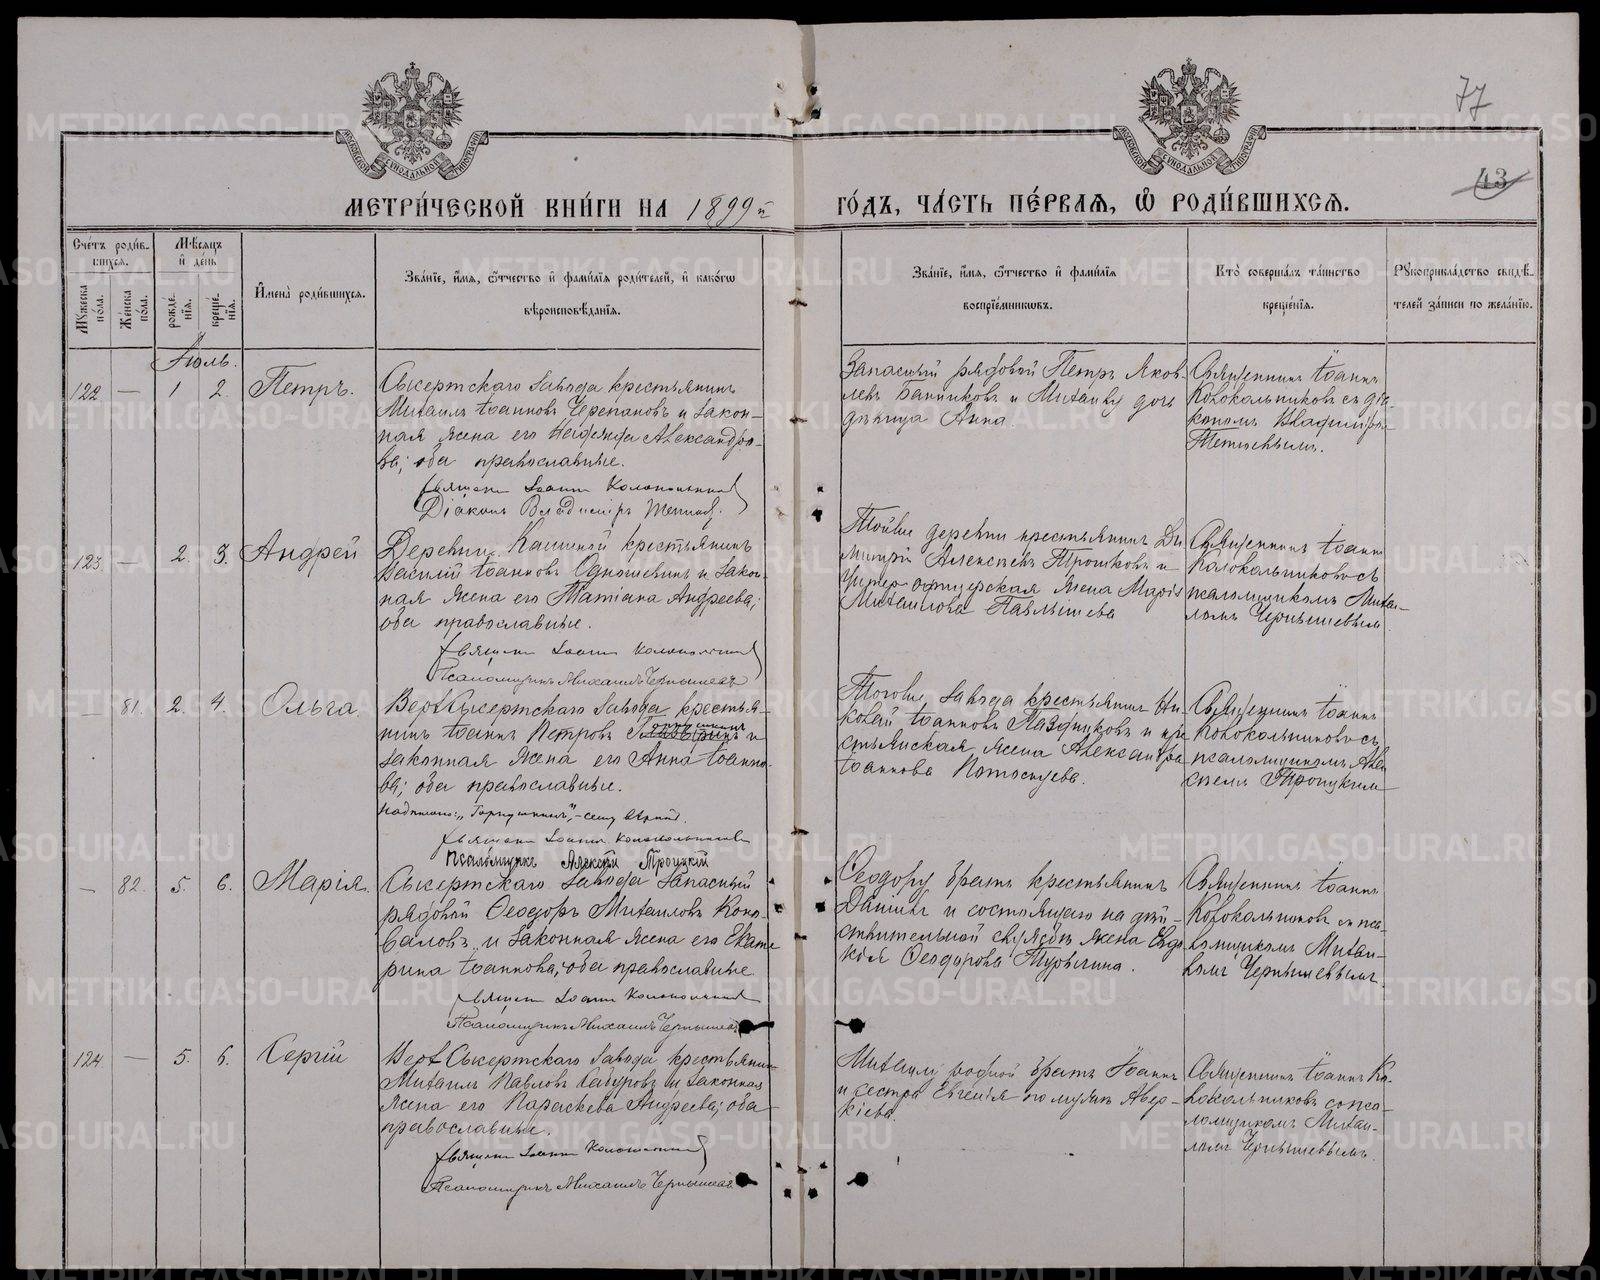 77
43
МЕТРИ́ЧЕСКОЙ КНИ́ГИ НА 1899й ГО́ДЪ, ЧА́СТЬ ПЕ́РВАЯ, Ѿ РОДИ́ВШИХСЯ.
Сче́тъ роди́вшихся.
Мꙋжеска по́ла.
Же́нска по́ла.
Мѣ́сяцъ и҆ де́нь
рожде́нїя.
креще́нїя.
И҆мена̀ роди́вшихся.
Зва́нїе, и҆́мя, ѻ҆́тчество и҆ фами́лїя роди́телей, и҆ како́гѡ
вѣроисповѣ́данїя.
Зва́нїе, и҆́мя, ѻ҆́тчество и҆ фами́лїя
воспрїе́мниковъ.
Кто̀ соверша́лъ та́инство
креще́нїя.
Рꙋкоприкла́дство свидѣ́телей за́писи по жела́нїю.
Іюль.
122 — 1 2. Петръ.
Сысертскаго завода крестьянинъ
Михаилъ Іоанновъ Черепановъ и закон-
ная жена его Надежда Александро-
ва; оба православные.
Священ. Іоаннъ Колокольниковъ
Діаконъ Владиміръ
Запасный рядовой Петръ Яков-
левъ Банниковъ и Михаилу дочь
дѣвица Анна.
Священникъ Іоаннъ
Колокольниковъ съ діа-
кономъ Владиміром
123 — 2. 3. Андрей
Деревни Кашиной крестьянинъ
Василій Іоанновъ и закон-
ная жена его Татіана Андреева;
оба православные.
Священ. Іоаннъ Колокольников
Псаломщикъ Михаилъ Чернышевъ
Тойже деревни крестьянинъ Ди-
митрій Алексѣевъ Трошковъ и
Унтер-офицерская жена Марія
Михаилова
Священникъ Іоаннъ
Колокольниковъ съ
псаломщикомъ Михаи-
ломъ Чернышевымъ
— 81. 2. 4. Ольга.
Верх Сысертскаго завода крестья-
нинъ Іоаннъ Петровъ и
законная жена его Анна Іоанно-
ва; оба православные.
Священ. Іоаннъ Колокольников
Псаломщикъ Алексѣй Троицкій
Тогоже завода крестьянинъ Ни-
колай Іоанновъ и кре-
стьянская жена Александра
Іоаннова
Священникъ Іоаннъ
Колокольниковъ съ
псаломщикомъ Алек-
сѣемъ Троицкимъ
— 82. 5. 6. Марія.
Сысертскаго завода запасный
рядовой Ѳеодоръ Михаиловъ Коно-
валовъ и законная жена его Екате-
рина Іоаннова; оба православные
Священ. Іоаннъ Колокольников
Псаломщикъ Михаилъ Чернышевъ
Ѳеодору братъ крестьянинъ
Даніилъ и состоящаго на дѣй-
ствительной службѣ жена Евдо-
кія Ѳеодорова
Священникъ Іоаннъ
Колокольниковъ съ пса-
ломщикомъ Михаи-
ломъ Чернышевымъ
124 — 5. 6. Сергій
Верх Сысертскаго завода крестьянинъ
Михаилъ Павловъ и законная
жена его Параскева Андреева; оба
православные.
Священ. Іоаннъ Колокольников
Псаломщикъ Михаилъ Чернышевъ
Михаилу родной братъ Іоаннъ
и сестра Евгенія по мужѣ Авер-
кіева.
Священникъ Іоаннъ Ко-
локольниковъ съ пса-
ломщикомъ Михаи-
ломъ Чернышевымъ.
METRIKI.GASO-URAL.RU